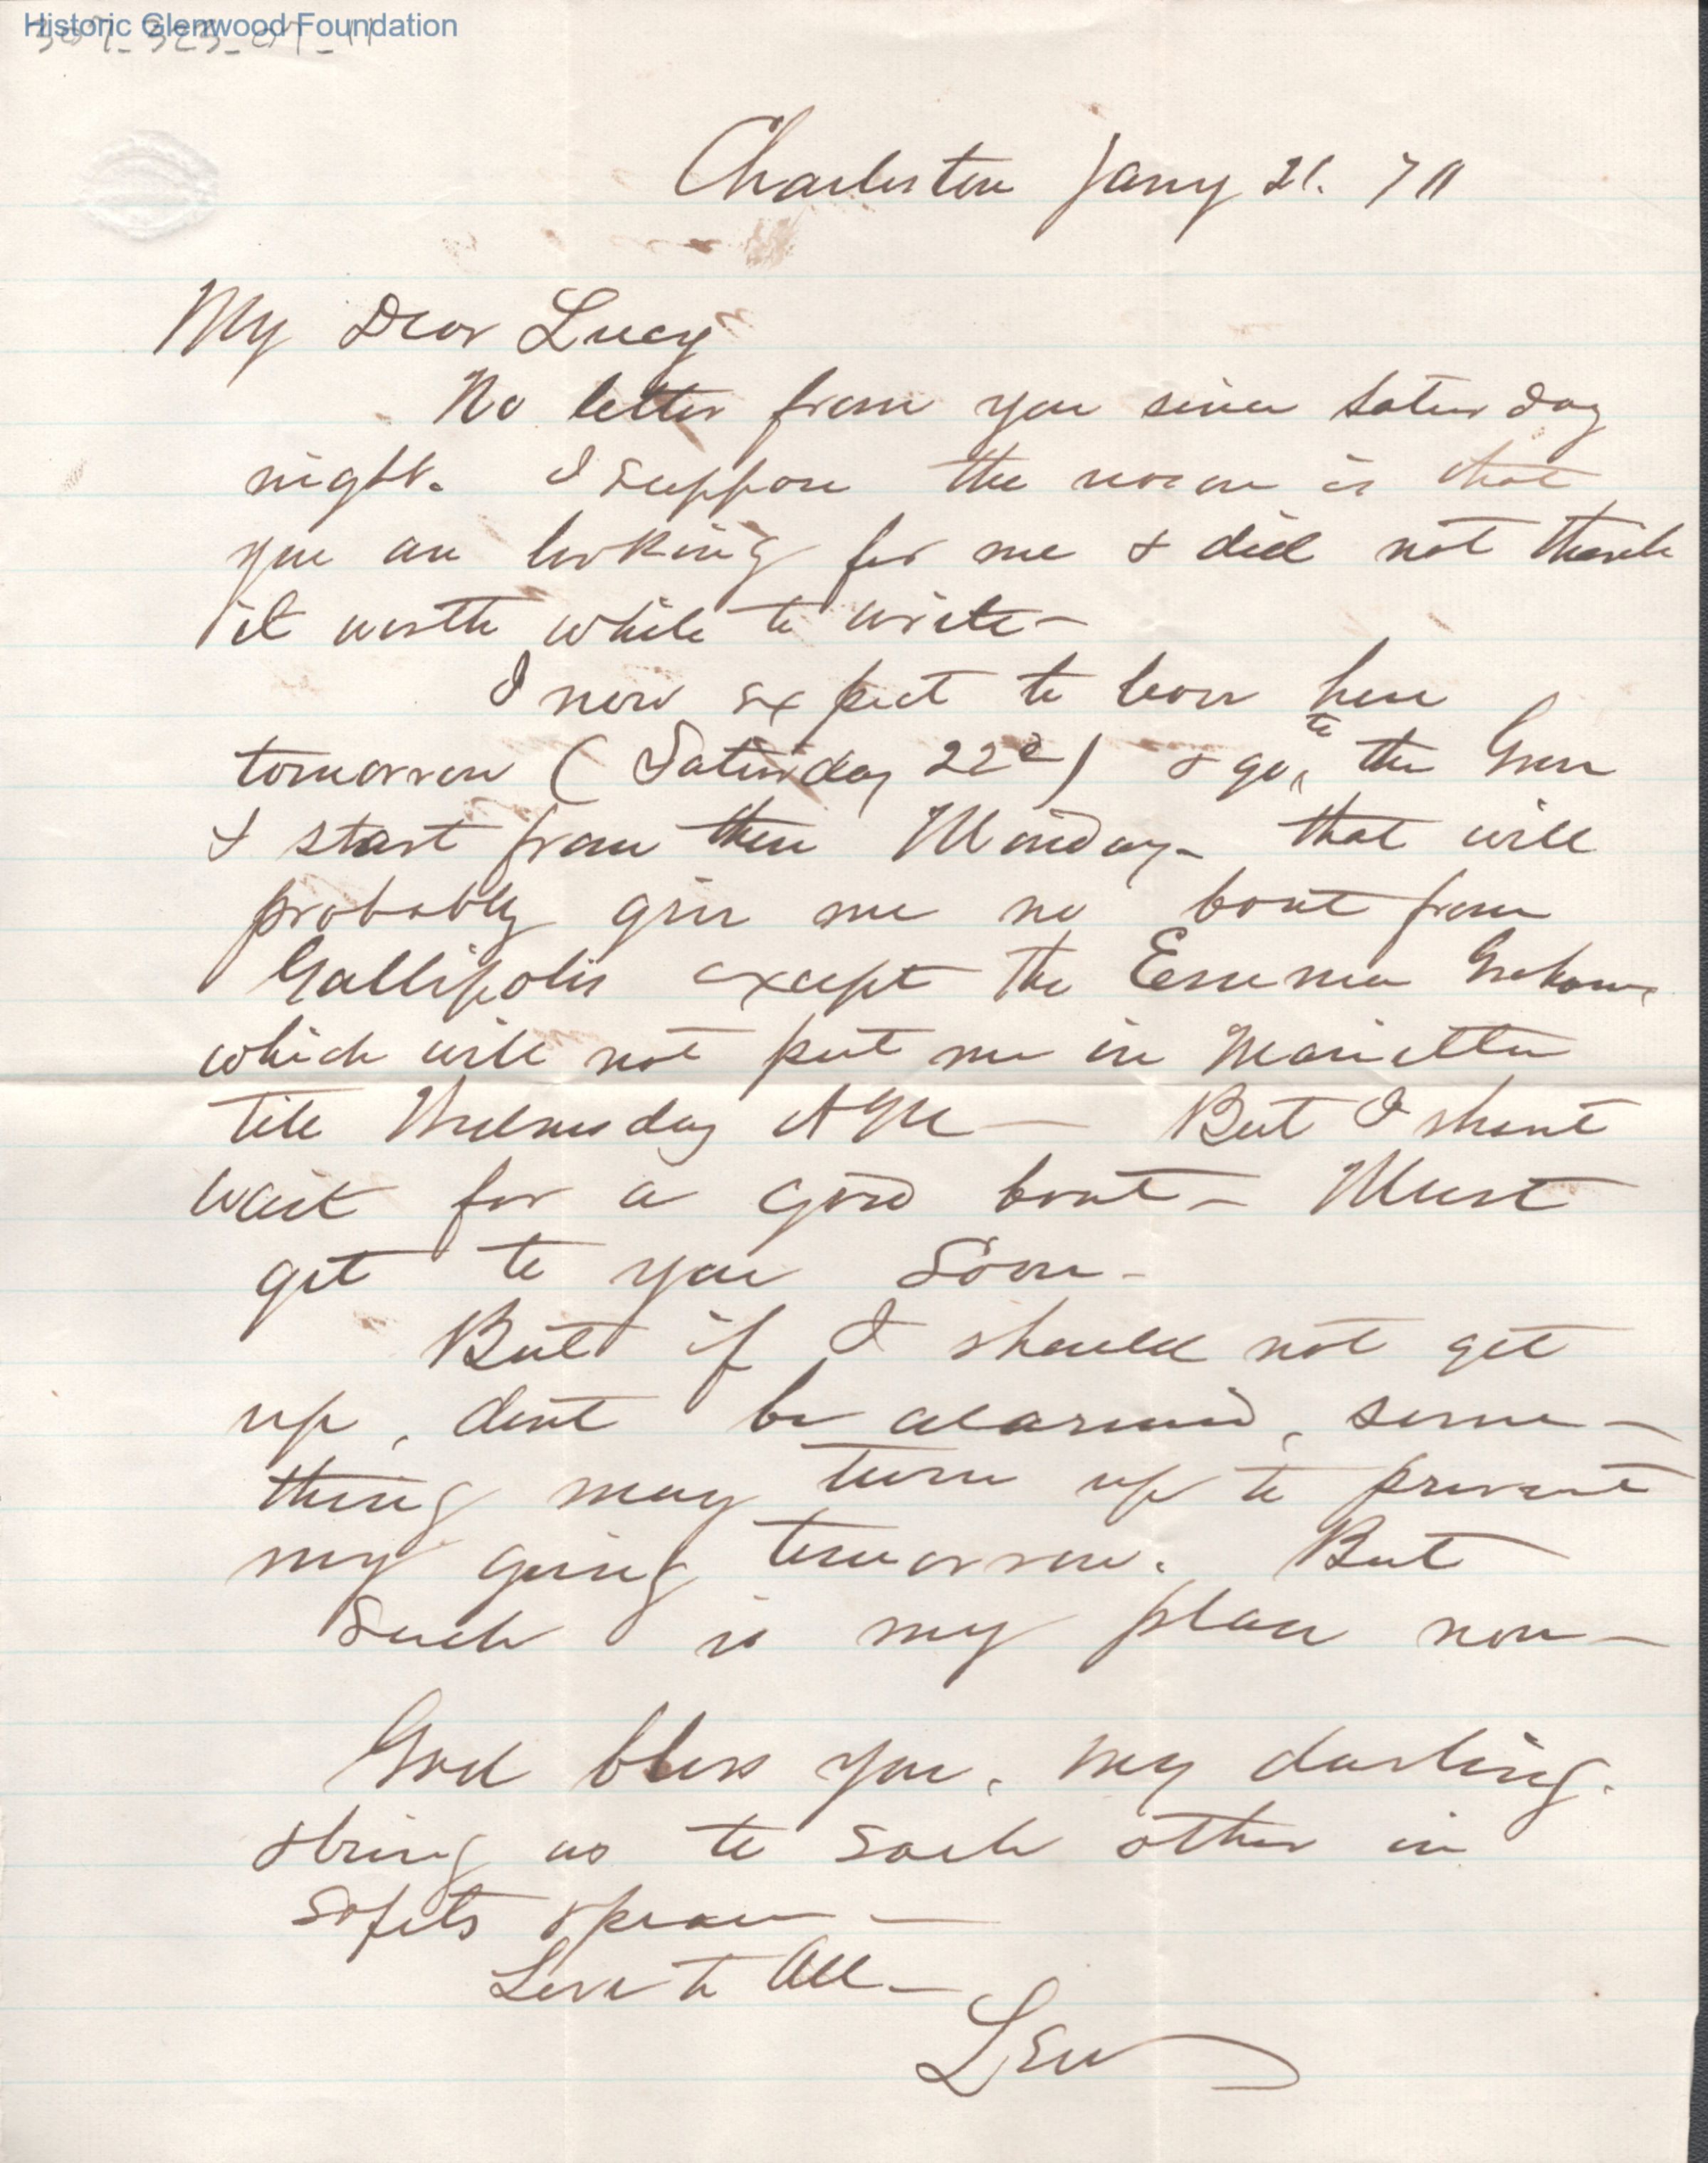 Historic Glenwood Foundation
Charleston Jany 21. 70
My Dear Lucy
No letter from you since Saturday
night. I suppose the reason is that
you are looking for me & did not think
it worth while to write —
I now expect to leave here
tomorrow (Saturday 22d) & go to the Green
& start from there Monday - that will
probably give me no boat from
Gallipolis except the Emma Graham
which will not put me in Marietta
till Wednesday AM — But I shant
wait for a good boat — Must
get to you soon -
But if I should not get
up, dont be alarmed, some-
thing may turn up to prevent
my going tomorrow. But
such is my plan now —
God bless you, my darling.
& bring us to each other in
safety & peace —
Love to All —
Lew